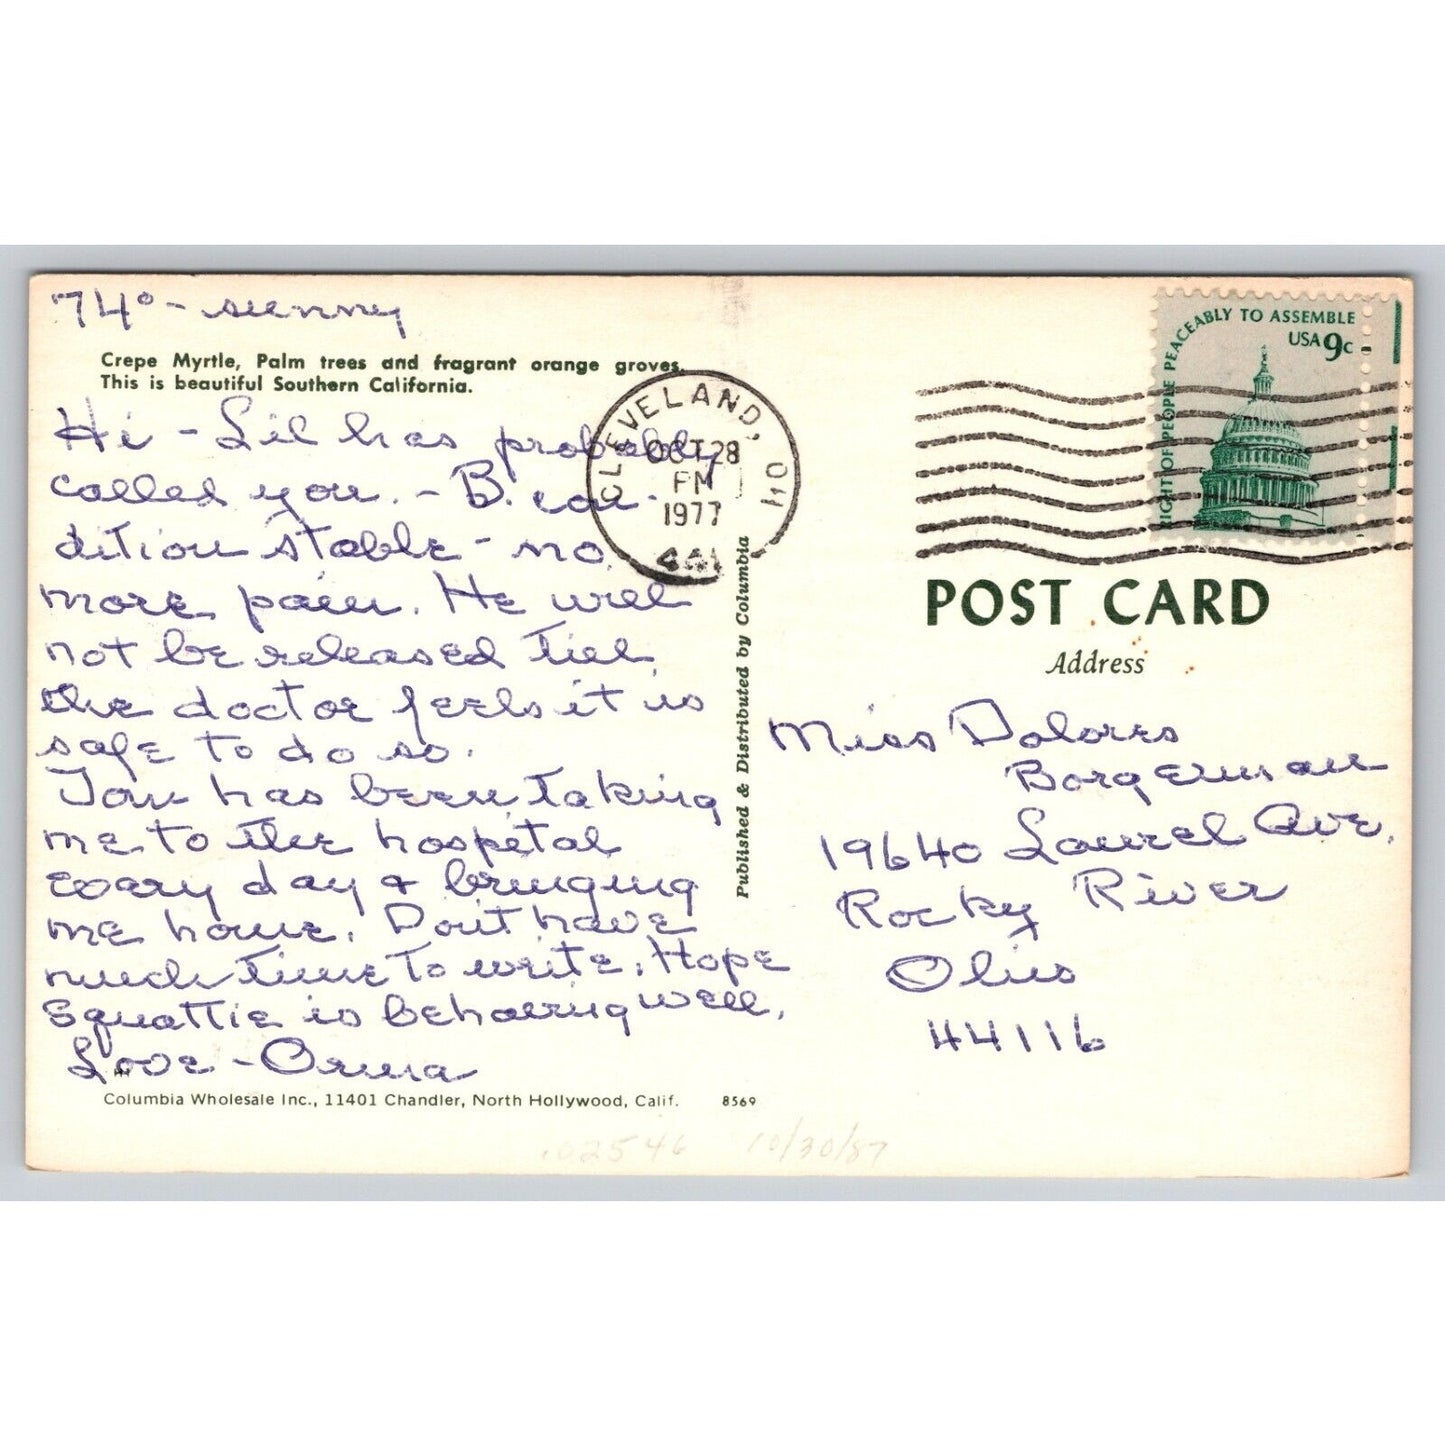 74° - sunny
Crepe Myrtle, Palm trees and fragrant orange groves.
This is beautiful Southern California.
Hi - Lil has probably
called you. - B. con-
dition stable - no
more pain. He will
not be released till
the doctor feels it is
safe to do so.
Tom has been taking
me to the hospital
every day & bringing
me home. Don't have
much time to write. Hope
Squattie is behaving well.
Love - Orma
Columbia Wholesale Inc., 11401 Chandler, North Hollywood, Calif. 8569
102546 10/30/87
Published & Distributed by Columbia
CLEVELAND, OH
OCT 28
PM
1977
RIGHT OF PEOPLE PEACEABLY TO ASSEMBLE
USA 9c
POST CARD
Address
Miss Dolores
Borgerman
19640 Laurel Ave.
Rocky River
Ohio
44116